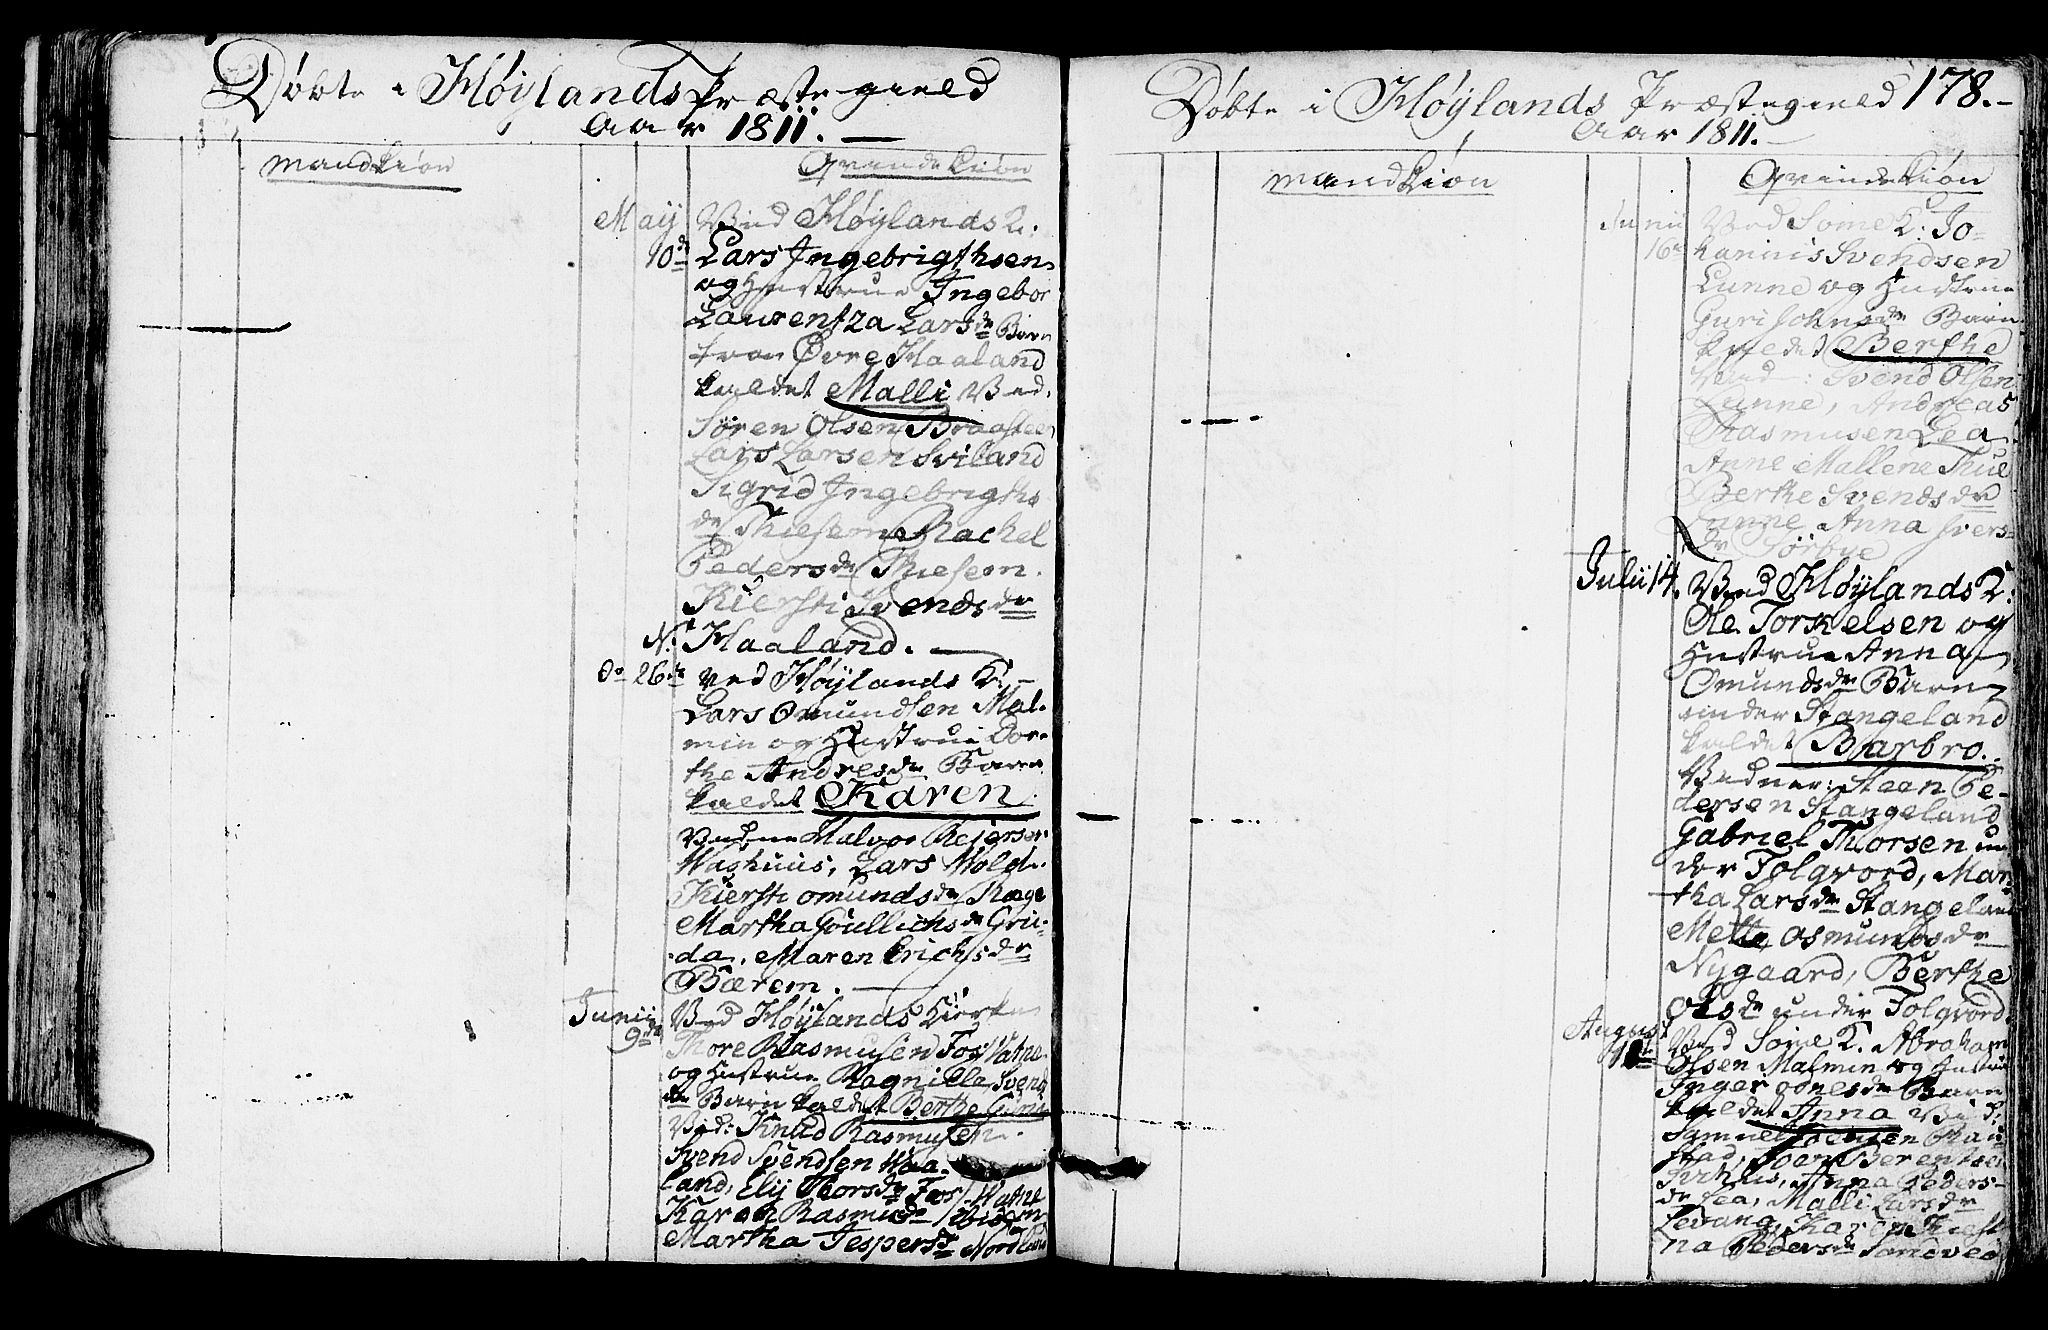 Döbte i Høijlands Præstegield
Aar 1811. —
Mandkiön
Qvindekiön
Maij Ved Høijlands K:
10de Lars Ingebrigthsen
og Hustrue Ingebor
Laurentza Larsdr Barn
fran Øvre Haaland
kaldet Malli Ved.
Sören Olsen Braasteen
Lars Larsen Sviland
Sigrid Ingebrigths
dr Thiesem Rachel
Pedersdr Thiesem.
Kiersti Svendsdr
N: Haaland. —
do 26de Ved Høijlands K: —
Lars Omundsen Mal-
min og Hustrue Dor-
the Andresdr Barn
kaldet Karen
Vidne Halvor Reiersen
Hashuus, Lars Molde
Kiersti Omundsdr Røge
Martha Goullichsdr Gru-
da, Maren Erichsdr
Bærem. —
Junii Ved Høijlands Kierke
9de Thore Rasmusen Fos Vatne
og Hustrue Ragnilla Svends
dr Barn kaldet Berthe Guria
Ved: Knud Rasmusen
Svend Svendsen Haa-
land, Elij Thorsdr Fos Vatne
Karen Rasmusdr
Martha Jespersdr Nordland
Döbte i Høijlands Præstegield 178. —
Aar 1811. —
Mandkiön
Qvindekiön
Junii Ved Some K: Jo-
16de hannis Svendsen
Lunne og Hustrue
Guri Johnsdr Barn
kaldet Berthe
Vidn: Svend Olsen
Lunne, Andreas
Rasmusen Lea
Anne Mallene Thue
Berthe Svendsdr
Lunne Anna Ivers-
dr Sörbye
Julii 14. Ved Høijlands K:
Ole Torkelsen og
Hustrue Anna
Omundsdr Barn
under Stangeland
kaldet Barbro.
Vidner: Steen Pe-
dersen Stangeland
Gabriel Thorsen un
der Folgvord, Mar
tha Larsdr Stangeland
Mette Osmundsdr
Nygaard, Berthe
Olsdr under Folgvord.
August Ved Some K. Abraham
11te Olsen Malmin og Hustrue
Inger Jonesdr Barn
kaldet Anna Vid:
Samuel Joensen Skau
stad, Soen Berentsen
Kirkhus, Anna Peders-
dr Lea, Malli Larsdr
Levang, Karen Kirsti
na Pedersdr Sandved